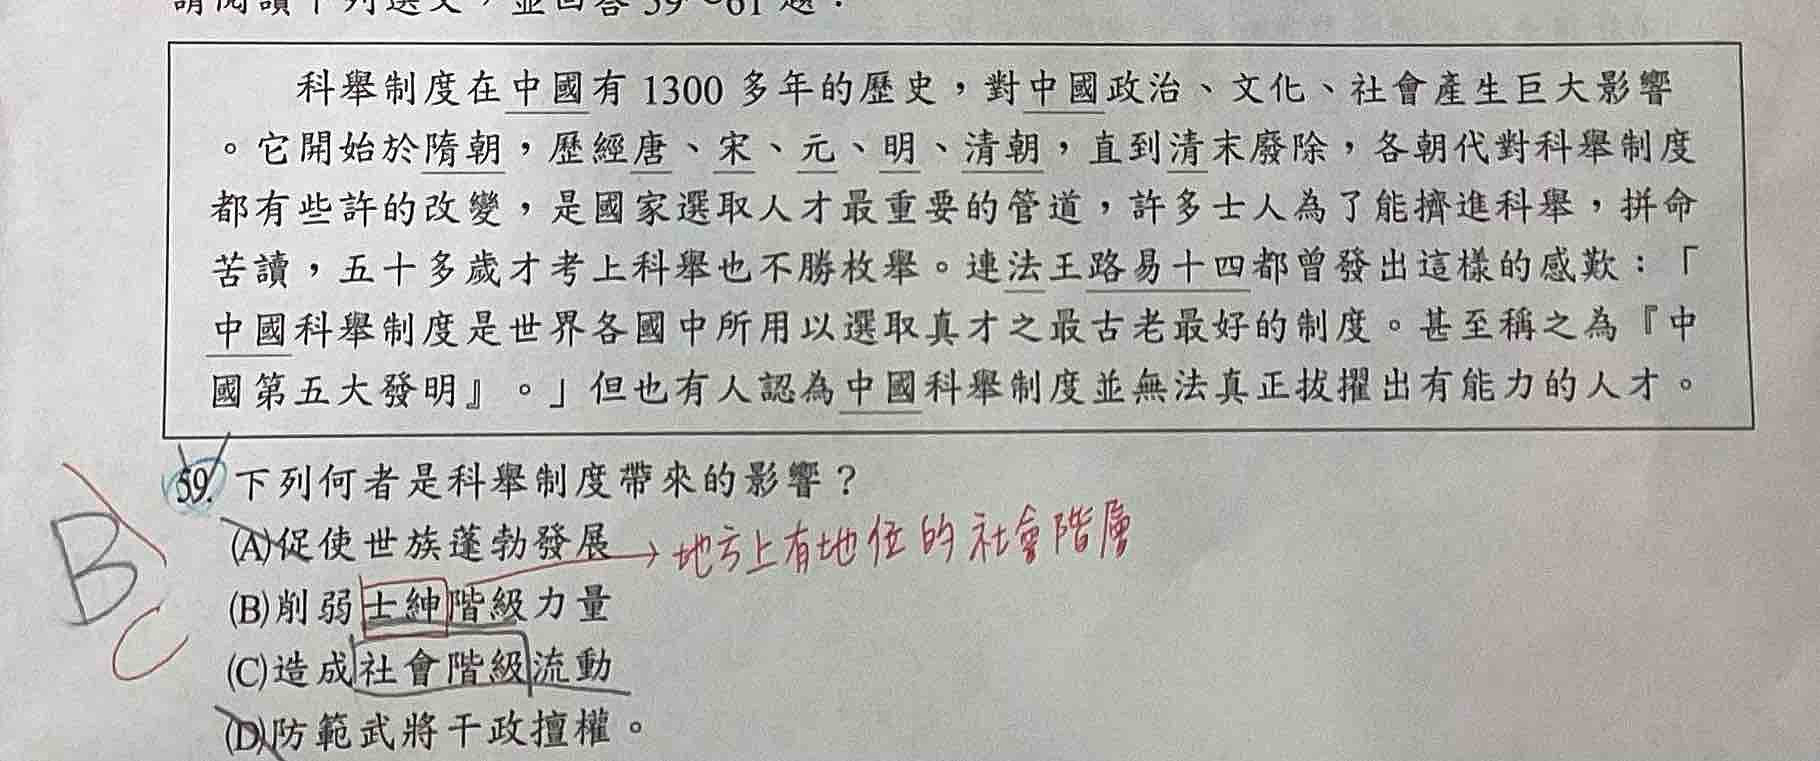 請閱讀下列選文，並回答59～61題：
科舉制度在中國有1300多年的歷史，對中國政治、文化、社會產生巨大影響
。它開始於隋朝，歷經唐、宋、元、明、清朝，直到清末廢除，各朝代對科舉制度
都有些許的改變，是國家選取人才最重要的管道，許多士人為了能擠進科舉，拼命
苦讀，五十多歲才考上科舉也不勝枚舉。連法王路易十四都曾發出這樣的感歎：「
中國科舉制度是世界各國中所用以選取真才之最古老最好的制度。甚至稱之為『中
國第五大發明』。」但也有人認為中國科舉制度並無法真正拔擢出有能力的人才。
59.下列何者是科舉制度帶來的影響？
(A)促使世族蓬勃發展
→地方上有地位的社會階層
B
(B)削弱士紳階級力量
C
(C)造成社會階級流動
(D)防範武將干政擅權。